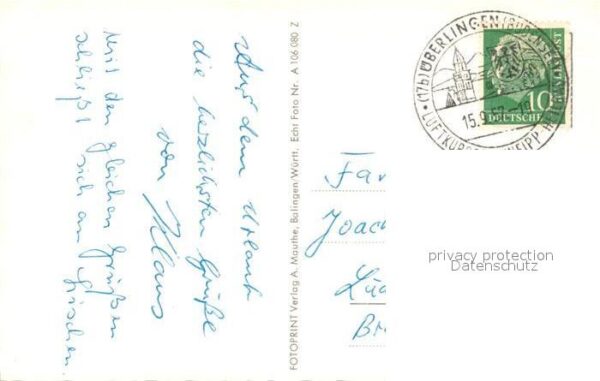 Aus dem Urlaub
die herzlichsten Grüße
von Klaus
Mit den gleichen Grüßen
schließt sich an
FOTOPRINT Verlag A. Mauthe, Balingen/Württ. Echt Foto Nr. A 106 080 Z
(17b) ÜBERLINGEN (BODENSEE)
15.9.
LUFTKURORT
10
DEUTSCHE
BUNDESPOST
Fam
Joach
Lüd
Br
privacy protection
Datenschutz